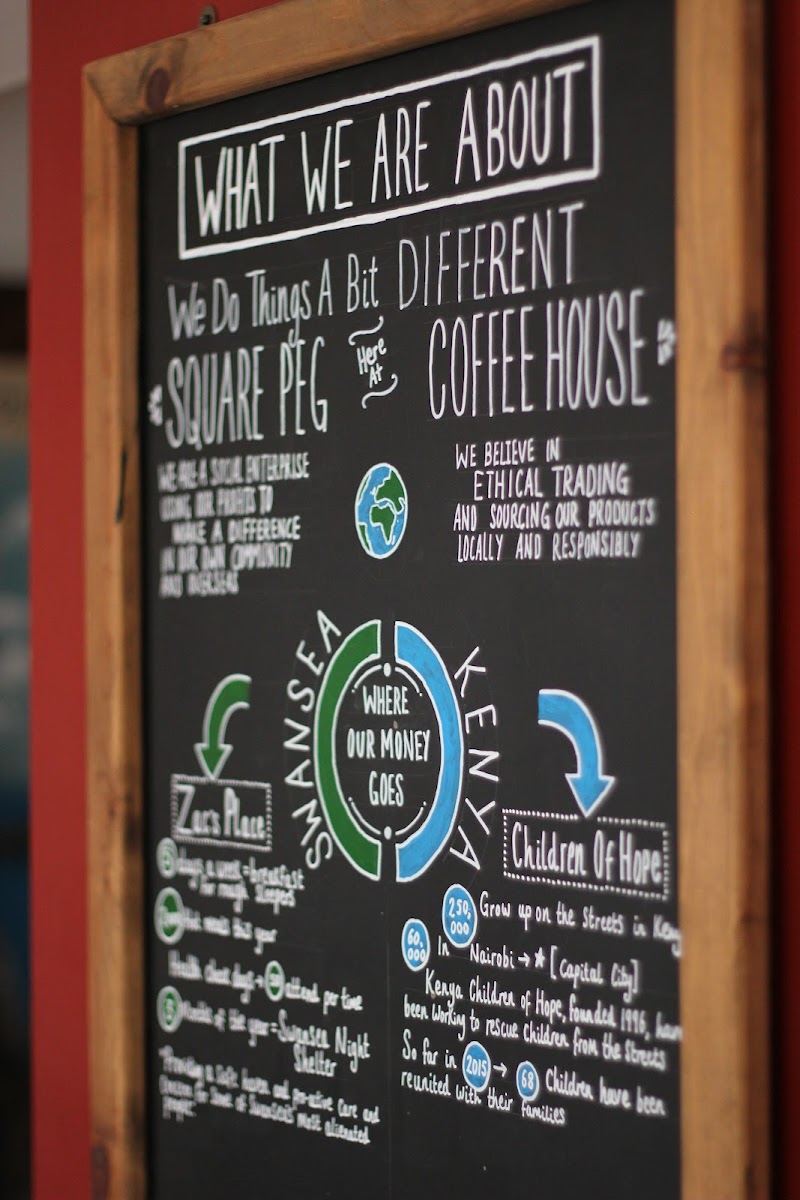 WHAT WE ARE ABOUT
We Do Things A Bit DIFFERENT
Here
At
SQUARE PEG COFFEE HOUSE
WE ARE A SOCIAL ENTERPRISE
USING OUR PROFITS TO
MAKE A DIFFERENCE
IN OUR OWN COMMUNITY
AND OVERSEAS
WE BELIEVE IN
ETHICAL TRADING
AND SOURCING OUR PRODUCTS
LOCALLY AND RESPONSIBLY
SWANSEA
KENYA
WHERE
OUR MONEY
GOES
Zac's Place
days a week = breakfast
for rough sleepers
Hot meals this year
Health check days → attend per time
weeks of the year = Swansea Night
Shelter
"Providing a safe haven and pro-active care and
for some of Swansea's most alienated
people"
Children Of Hope
250,000 Grow up on the Streets in
60,000 In Nairobi → ★ [Capital City]
Kenya Children of Hope, founded 1996,
been working to rescue children from the streets
So far in 2015 → 68 Children have been
reunited with their families